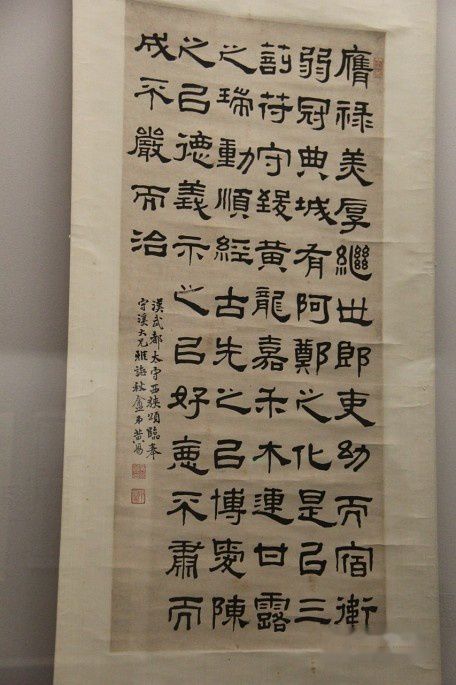 膺祿美厚繼世郎吏幼而宿衛
弱冠典城有阿鄭之化是㠯三
剖苻守致黃龍嘉禾木連甘露
之瑞動順經古先之㠯博愛陳
之㠯德義示之㠯好惡不肅而
成不嚴而治
漢武都太守西狹頌臨奉
守溪大兄雅 秋盦弟黃易